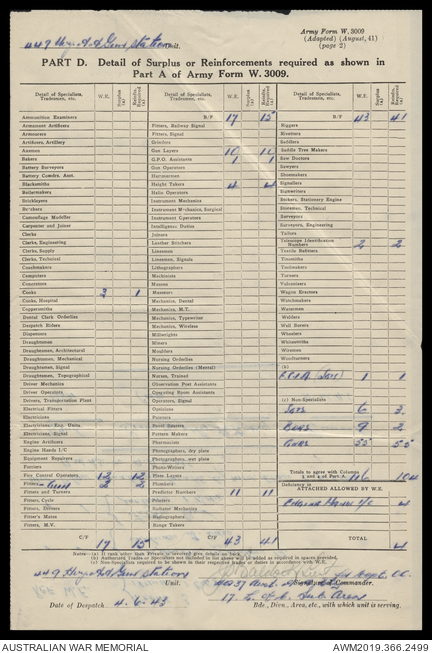 Army Form W. 3009
(Adapted) (August, 41)
(page 2)
449 Hvy A A Gun Station Unit.
PART D. Detail of Surplus or Reinforcements required as shown in
Part A of Army Form W. 3009.
Detail of Specialists, Tradesmen, etc. W.E. Surplus (a) Reinfts. Required (a)
Ammunition Examiners
Armament Artificers
Armourers
Artificers, Artillery
Axemen
Bakers
Battery Surveyors
Battery Comdrs. Asst.
Blacksmiths
Boilermakers
Bricklayers
Butchers
Camouflage Modeller
Carpenter and Joiner
Clerks
Clerks, Engineering
Clerks, Supply
Clerks, Technical
Coachmakers
Computers
Concretors
Cooks 2 1
Cooks, Hospital
Coppersmiths
Dental Clerk Orderlies
Despatch Riders
Dispensers
Draughtsmen
Draughtsmen, Architectural
Draughtsmen, Mechanical
Draughtsmen, Signal
Draughtsmen, Topographical
Driver Mechanics
Driver Operators
Drivers, Transportation Plant
Electrical Fitters
Electricians
Electricians, Eng. Units
Electricians, Signal
Engine Artificers
Engine Hands I/C
Equipment Repairers
Farriers
Fire Control Operators 12 12
Fitters Gun 2 2
Fitters and Turners
Fitters, Cycle
Fitters, Drivers
Fitter's Mates
Fitters, M.V.
C/F 17 15
Detail of Specialists, Tradesmen, etc. W.E. Surplus (a) Reinfts. Required (a)
B/F 17 15
Fitters, Railway Signal
Fitters, Signal
Grinders
Gun Layers 10 10
G.P.O. Assistants 1 1
Gun Operators
Hammermen
Height Takers 4 4
Helio Operators
Instrument Mechanics
Instrument Mechanics, Surgical
Instrument Operators
Intelligence Duties
Joiners
Leather Stitchers
Linesmen
Linesmen, Signals
Lithographers
Machinists
Masons
Masseurs
Mechanics, Dental
Mechanics, M.T.
Mechanics, Typewriter
Mechanics, Wireless
Millwrights
Miners
Moulders
Nursing Orderlies
Nursing Orderlies (Mental)
Nurses, Trained
Observation Post Assistants
Operating Room Assistants
Operators, Signal
Opticians
Painters
Panel Beaters
Pattern Makers
Pharmacists
Photographers, dry plate
Photographers, wet plate
Photo-Writers
Plate Layers
Plumbers
Predictor Numbers 11 11
Radiator Mechanics
Radiographers
Range Takers
C/F 43 41
Detail of Specialists, Tradesmen, etc. W.E. Surplus (a) Reinfts. Required (a)
B/F 43 41
Riggers
Riveters
Saddlers
Saddle Tree Makers
Saw Doctors
Sawyers
Shoemakers
Signallers
Signwriters
Stokers, Stationery Engine
Storemen, Technical
Surveyors
Surveyors, Engineering
Tailors
Telescope Identification Numbers 2 2
Textile Refitters
Tinsmiths
Toolmakers
Turners
Vulcanizers
Wagon Erectors
Watchmakers
Watermen
Welders
Well Borers
Wheelers
Whitesmiths
Wiremen
Woodturners
(b)
1 1
(c) Non-Specialists
Sgts 6 3
Bdrs. 9 2
Gnrs. 55 55
Totals to agree with Columns 3 and 4 of Part A. 116 104
Deficiency in
ATTACHED ALLOWED BY W.E.
4
TOTAL 4
Notes:—(a) If rank other than Private is involved give details on back.
(b) Authorised Trades or Specialists not included in list above will be added as required in spaces provided.
(c) Non-specialists required to be shown in their respective trades or duties in accordance with W.E.
449 Hvy A A Gun Station Unit.
Signature of Commander
Capt. OC.
17 L of C. Sub Area
Bde., Divn., Area, etc., with which unit is serving.
Date of Despatch 4. 6. 43
AUSTRALIAN WAR MEMORIAL
AWM2019.366.2499